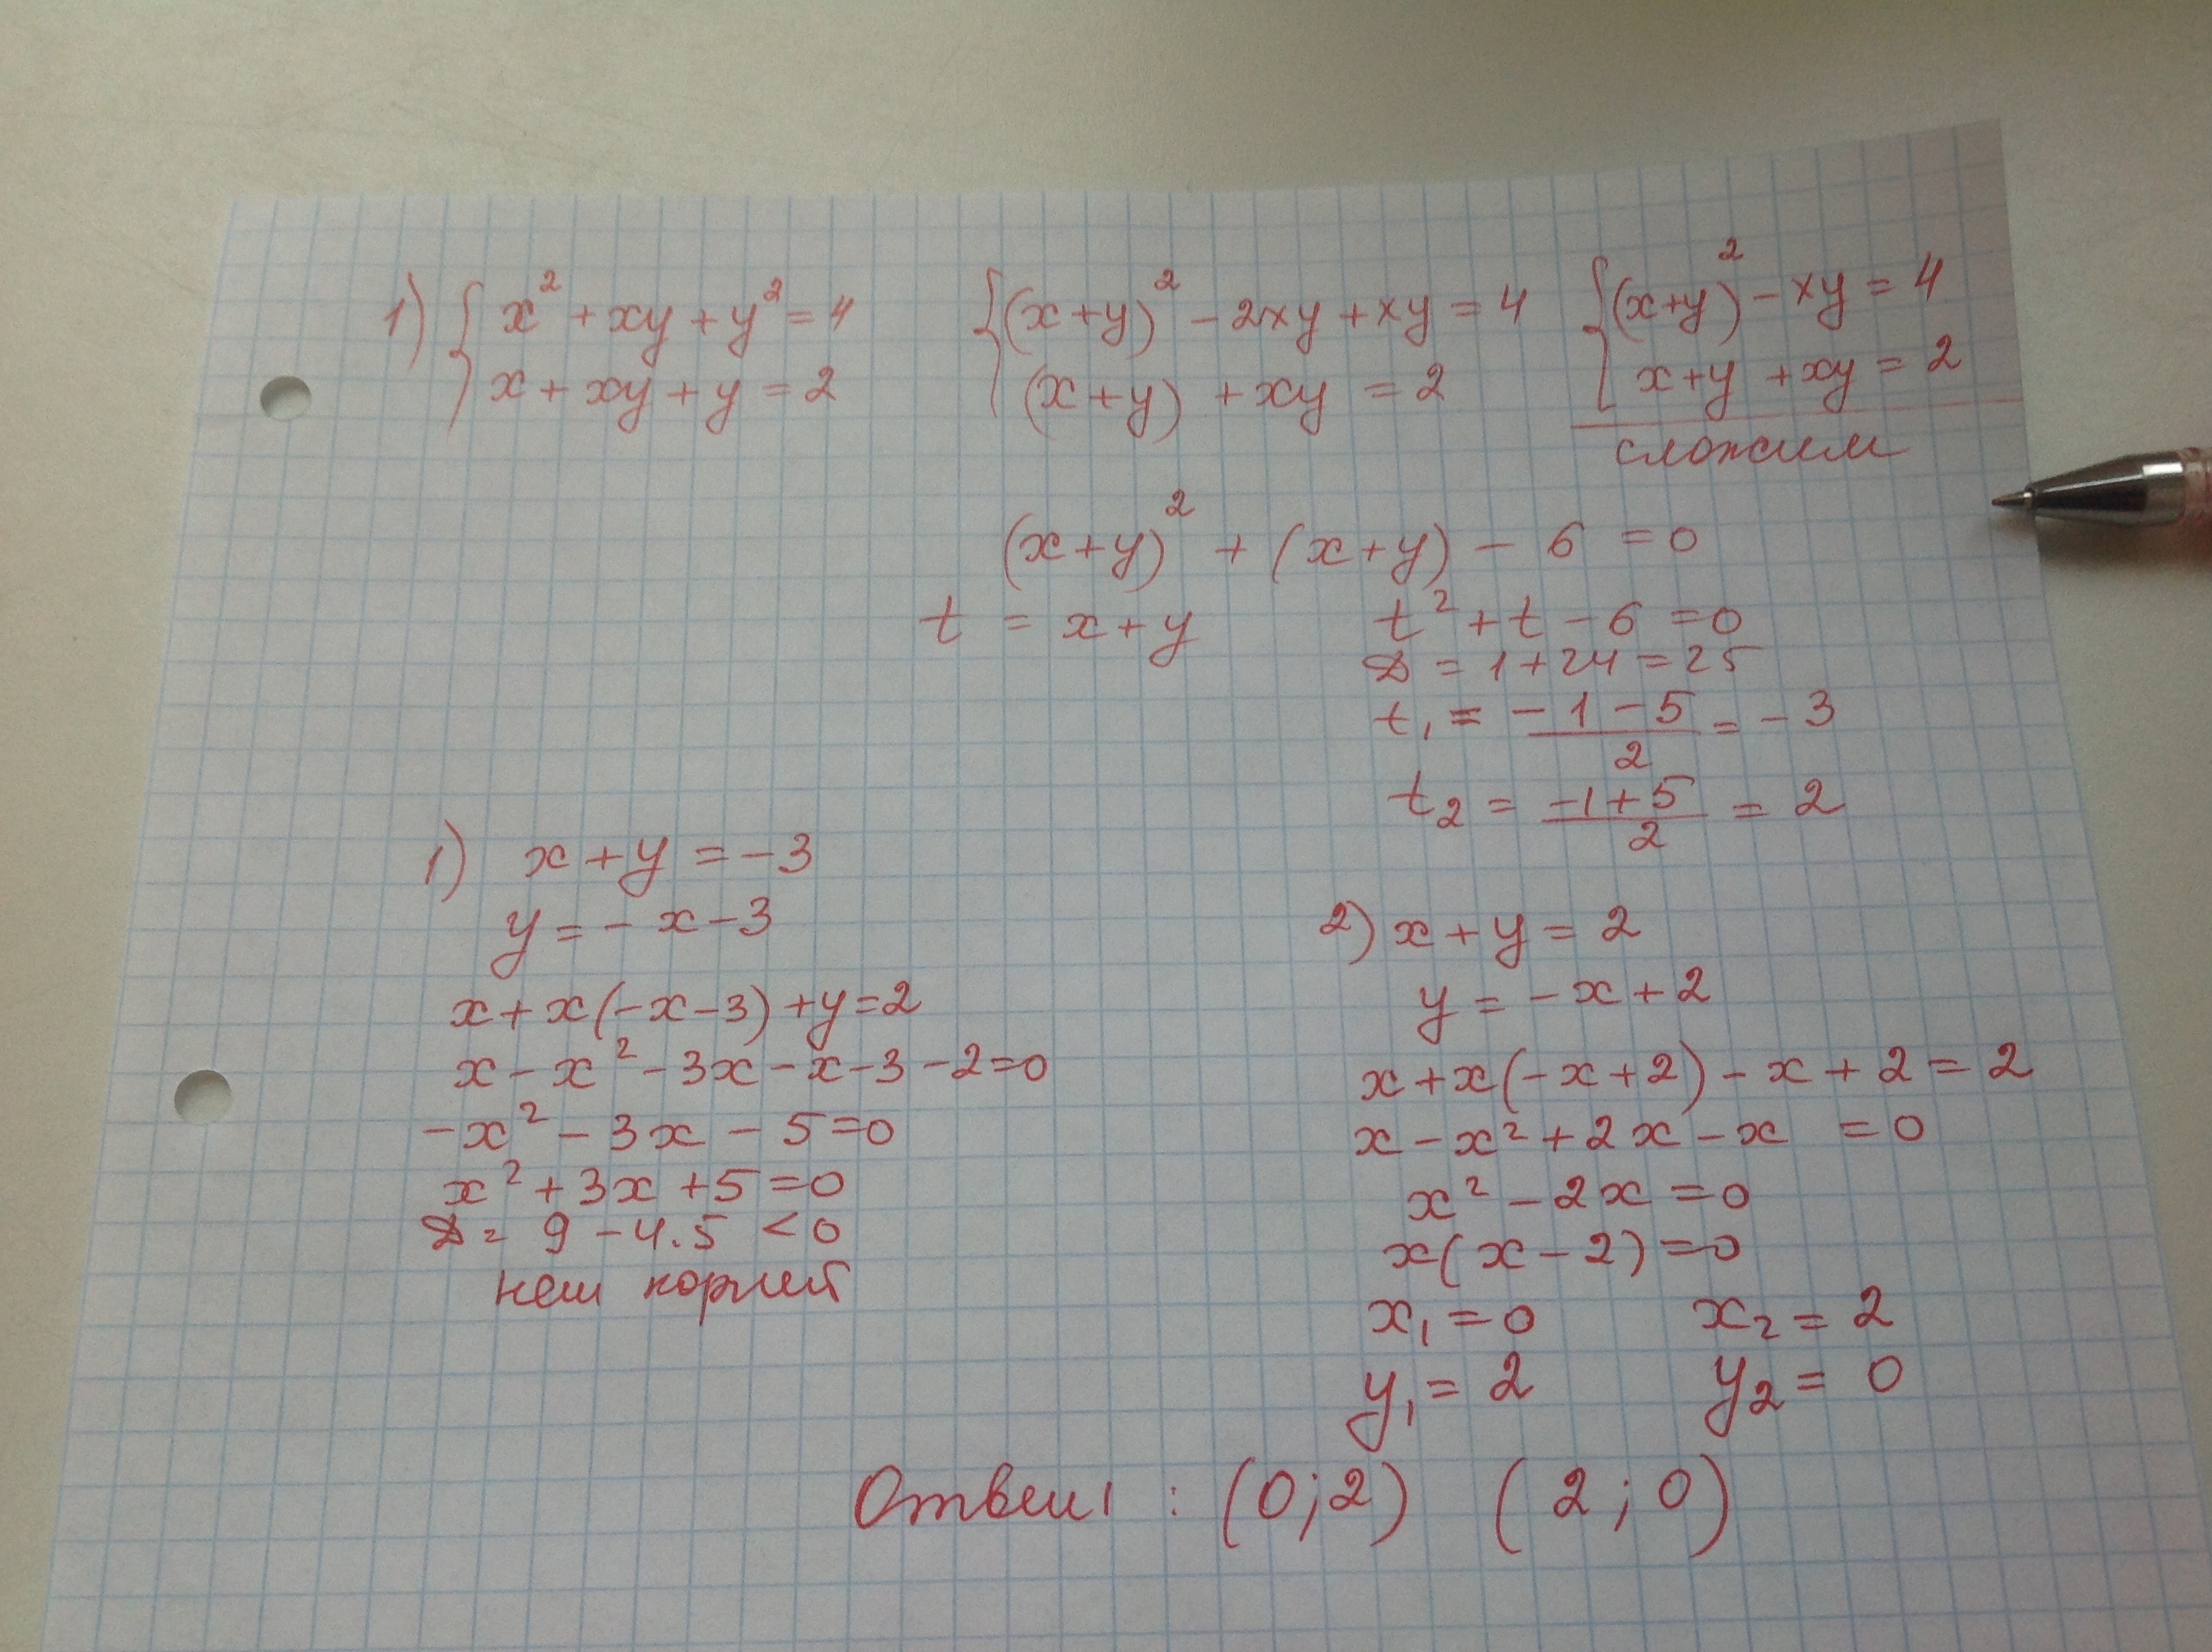 1) { x² + xy + y² = 4   { (x+y)² - 2xy + xy = 4   { (x+y)² - xy = 4
x + xy + y = 2   (x+y) + xy = 2   x+y + xy = 2
сложим
(x+y)² + (x+y) - 6 = 0
t = x+y   t² + t - 6 = 0
D = 1+24 = 25
t₁ = (-1-5)/2 = -3
t₂ = (-1+5)/2 = 2
1) x+y = -3
y = -x-3
x+x(-x-3)+y=2
x-x²-3x-x-3-2=0
-x²-3x-5=0
x²+3x+5=0
D = 9-4.5 <0
нет корней
2) x+y = 2
y = -x+2
x+x(-x+2)-x+2=2
x-x²+2x-x =0
x²-2x=0
x(x-2)=0
x₁=0   x₂=2
y₁=2   y₂=0
Ответ : (0;2) (2;0)